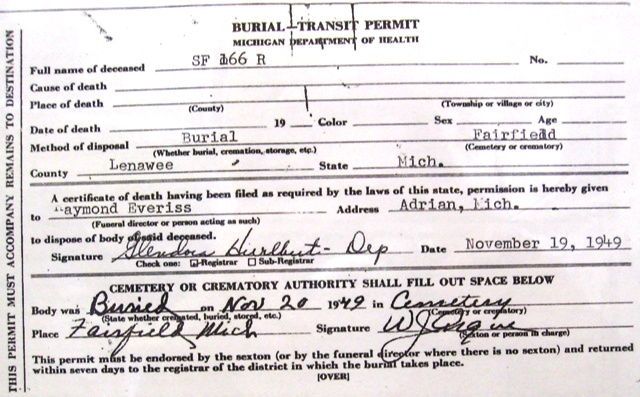 BURIAL-TRANSIT PERMIT
MICHIGAN DEPARTMENT OF HEALTH
Full name of deceased SF 166 R No.
Cause of death
Place of death
(County) (Township or village or city)
Date of death 19 Color Sex Age
Method of disposal Burial Fairfield
(Whether burial, cremation, storage, etc.) (Cemetery or crematory)
County Lenawee State Mich.
A certificate of death having been filed as required by the laws of this state, permission is hereby given
to Raymond Everiss Address Adrian, Mich.
(Funeral director or person acting as such)
to dispose of body of said deceased.
Signature Glendora Hurlbut - Dep Date November 19, 1949
Check one: Registrar Sub-Registrar
CEMETERY OR CREMATORY AUTHORITY SHALL FILL OUT SPACE BELOW
Body was Buried on Nov 20 1949 in Cemetery
(State whether cremated, buried, stored, etc.) (Cemetery or crematory)
Place Fairfield Mich Signature W J
(Sexton or person in charge)
This permit must be endorsed by the sexton (or by the funeral director where there is no sexton) and returned
within seven days to the registrar of the district in which the burial takes place.
[OVER]
THIS PERMIT MUST ACCOMPANY REMAINS TO DESTINATION